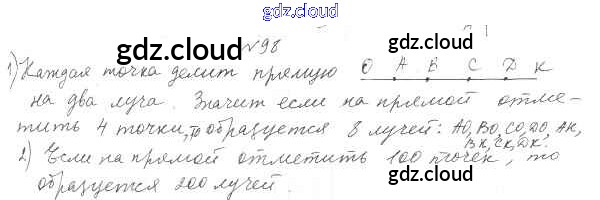 gdz.cloud
№98
gdz.cloud gdz.cloud gdz.cloud
1) Каждая точка делит прямую O A B C D K
на два луча. Значит если на прямой отме-
тить 4 точки, то образуется 8 лучей: AO, BO, CO, DO, AK,
BK, CK, DK.
2) Если на прямой отметить 100 точек, то
образуется 200 лучей.
gdz.cloud gdz.cloud gdz.cloud